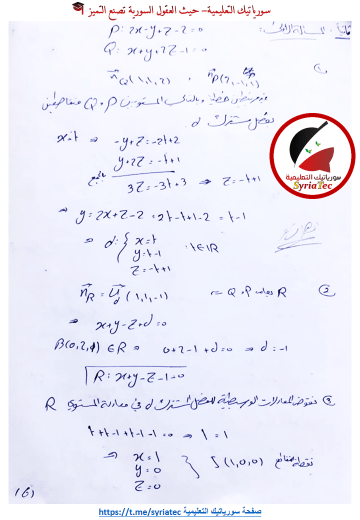 سورياتيك التعليمية- حيث العقول السورية تصنع التميز
ثانياً: المسألة الأولى:
P: 2x-y+z-2=0
Q: x+y+2z-1=0
n⃗Q(1,1,2) , n⃗P(2,-1,1)
بفصل مشترك d
x=t ⇒ -y+z=-2t+2
y+2z=-t+1
بالجمع
3z=-3t+3 ⇒ z=-t+1
⇒ y=2x+z-2 = 2t-t+1-2 = t-1
⇒ d: { x=t
y=t-1 : t∈IR
z=-t+1
سورياتيك التعليمية
SyriaTec
② R يعامد P و Q ⇒ n⃗R = u⃗d (1,1,-1)
⇒ x+y-z+d=0
∈ R ⇒ 0+2-1+d=0 ⇒ d=-1
R: x+y-z-1=0
③ نعوض المعادلات الوسيطية للفصل المشترك d في معادلة المستوي R
t+t-1+t-1-1=0 ⇒ t=1
⇒ x=1
y=0 } نقطة التقاطع (1,0,0)
z=0
(6)
صفحة سورياتيك التعليمية https://t.me/syriatec